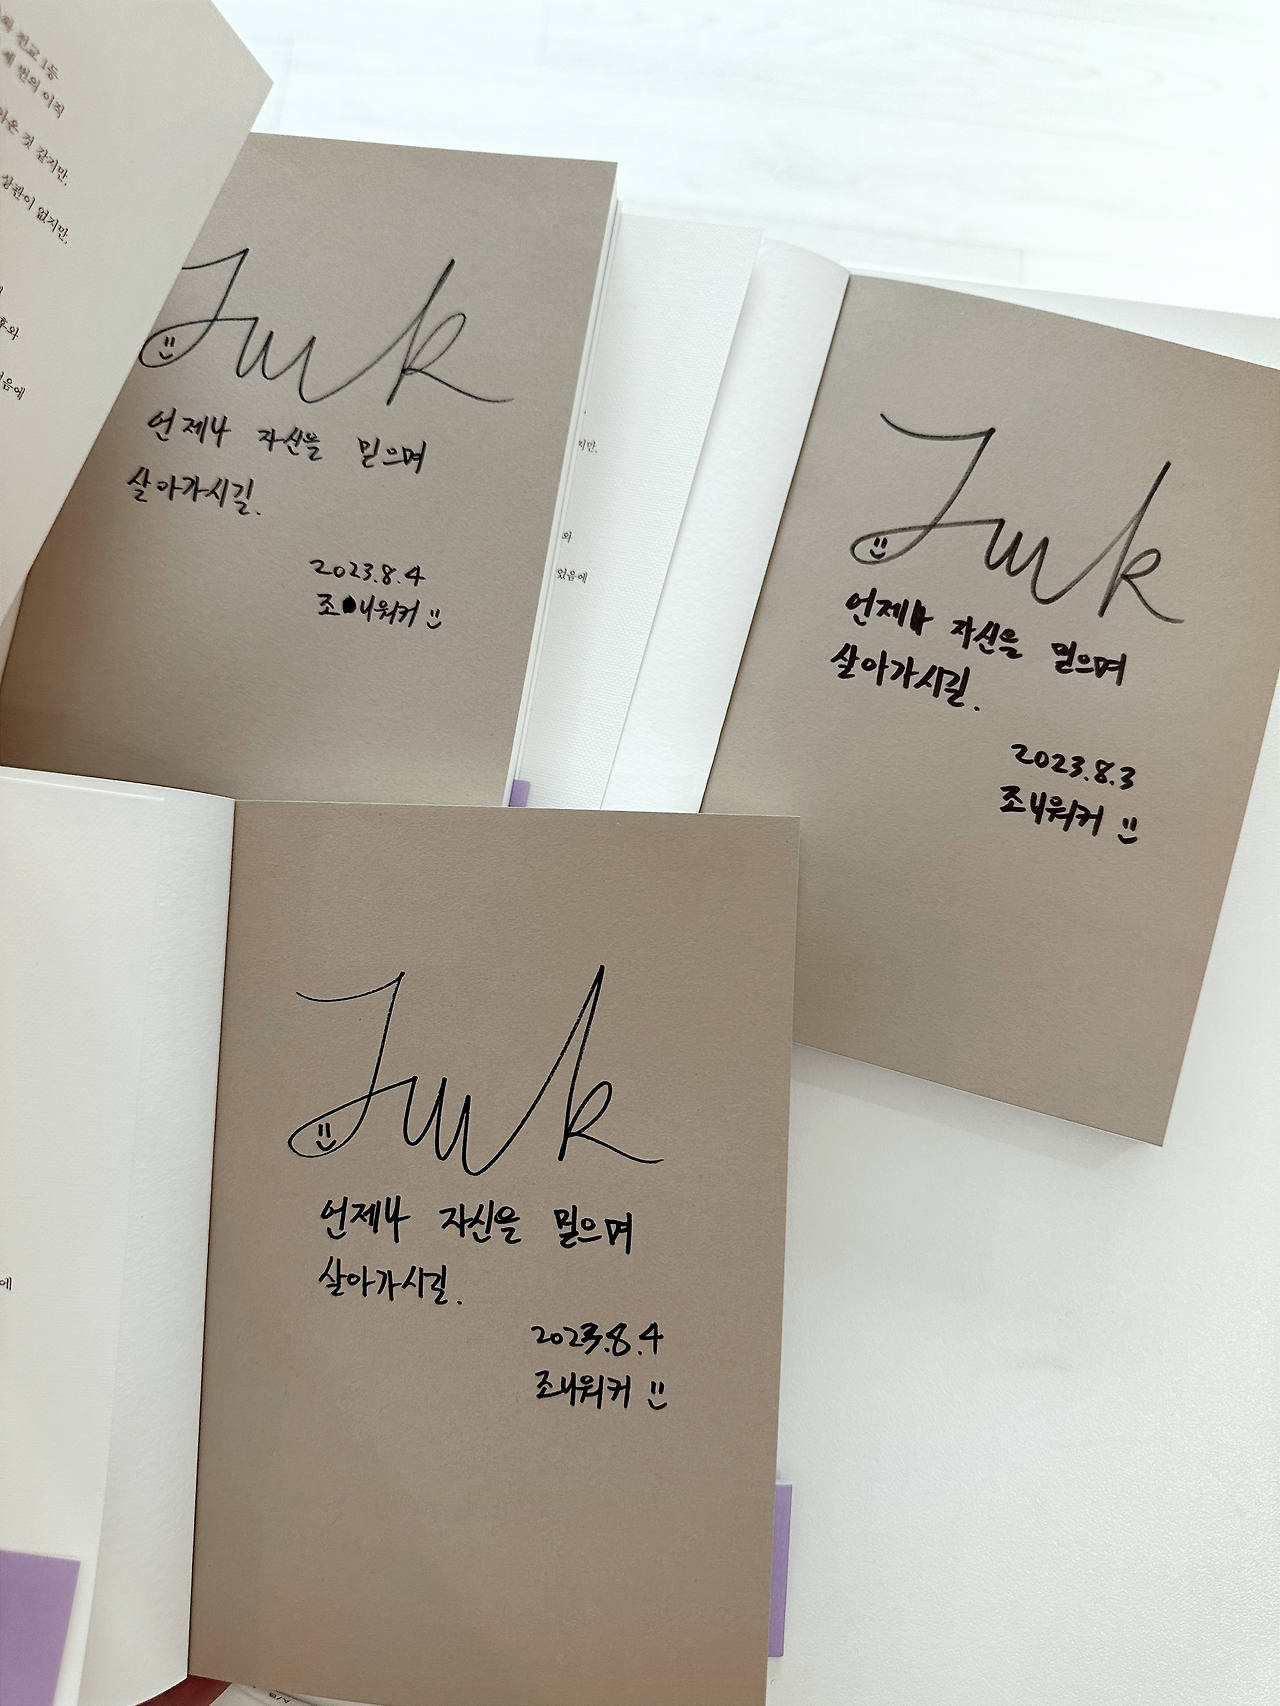 전교 1등
세 번의 이직
온 것 같지만,
상관이 없지만,
후와
음에
Juwk
언제나 자신을 믿으며
살아가시길.
2023.8.4
조나워커
지만,
와
었음에
Juwk
언제나 자신을 믿으며
살아가시길.
2023.8.3
조나워커
에
Juwk
언제나 자신을 믿으며
살아가시길.
2023.8.4
조나워커